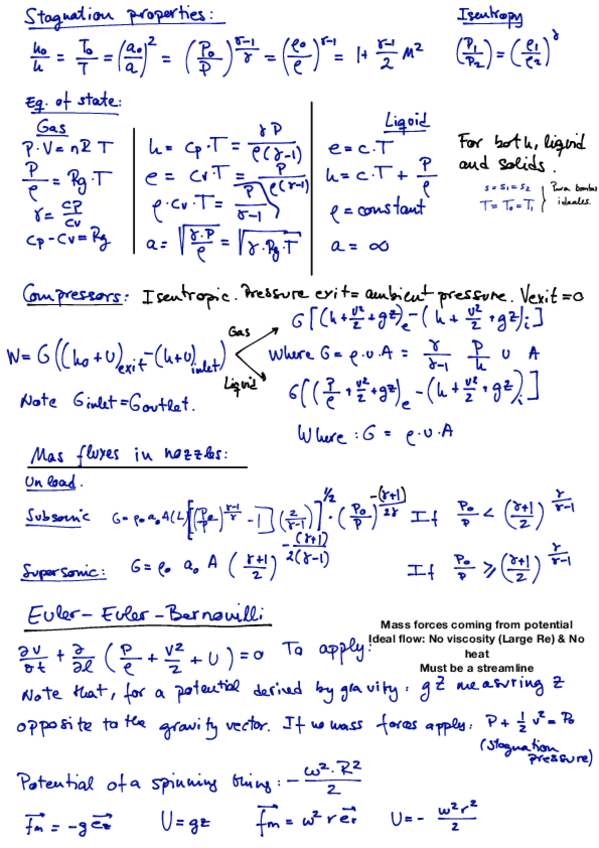 Stagnation properties: Isentropy
h₀/h = T₀/T = (a₀/a)² = (P₀/P)^((γ-1)/γ) = (ρ₀/ρ)^(γ-1) = 1 + (γ-1)/2 M² (P₁/P₂) = (ρ₁/ρ₂)^γ
Eq. of state:
Gas
P·V = nRT
P/ρ = Rg·T
γ = cp/cv
cp - cv = Rg
h = cp·T = γP/(ρ(γ-1))
e = cv·T = P/(ρ(γ-1))
ρ·cv·T = P/(γ-1)
a = √(γ·P/ρ) = √(γ·Rg·T)
Liquid
e = c·T
h = c·T + P/ρ
ρ = constant
a = ∞
For both, liquid
and solids.
s = s₁ = s₂
T = T₀ = T₁
Para bombas
ideales.
Compressors: Isentropic. Pressure exit = ambient pressure. Vexit = 0
W = G((h₀+U)exit - (h+U)inlet)
Gas G[(h + v²/2 + gz)e - (h + v²/2 + gz)i]
Where G = ρ·υ·A = γ/(γ-1) P/h υ A
Liquid G[(P/ρ + v²/2 + gz)e - (h + v²/2 + gz)i]
Note Ginlet = Goutlet.
Where: G = ρ·υ·A
Mas fluxes in nozzles:
Unload.
Subsonic G = ρ₀ a₀ A(L)[[(P₀/P)^((γ-1)/γ) - 1](2/(γ-1))]^(1/2) · (P₀/P)^(-(γ+1)/2γ) If P₀/P < ((γ+1)/2)^(γ/(γ-1))
Supersonic: G = ρ₀ a₀ A ((γ+1)/2)^(-(γ+1)/2(γ-1)) If P₀/P ≥ ((γ+1)/2)^(γ/(γ-1))
Euler-Euler-Bernouilli
∂v/∂t + ∂/∂l (P/ρ + v²/2 + U) = 0 To apply:
Mass forces coming from potential
Ideal flow: No viscosity (Large Re) & No
heat
Must be a streamline
Note that, for a potential derived by gravity: gz measuring z
opposite to the gravity vector. If no mass forces apply: P + ½v² = P₀
(Stagnation
pressure)
Potential of a spinning thing: -ω²·R²/2
f⃗m = -g e⃗z U = gz f⃗m = ω² r e⃗r U = -ω²r²/2